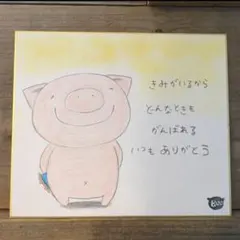 きみがいるから
どんなときも
がんばれる
いつも ありがとう